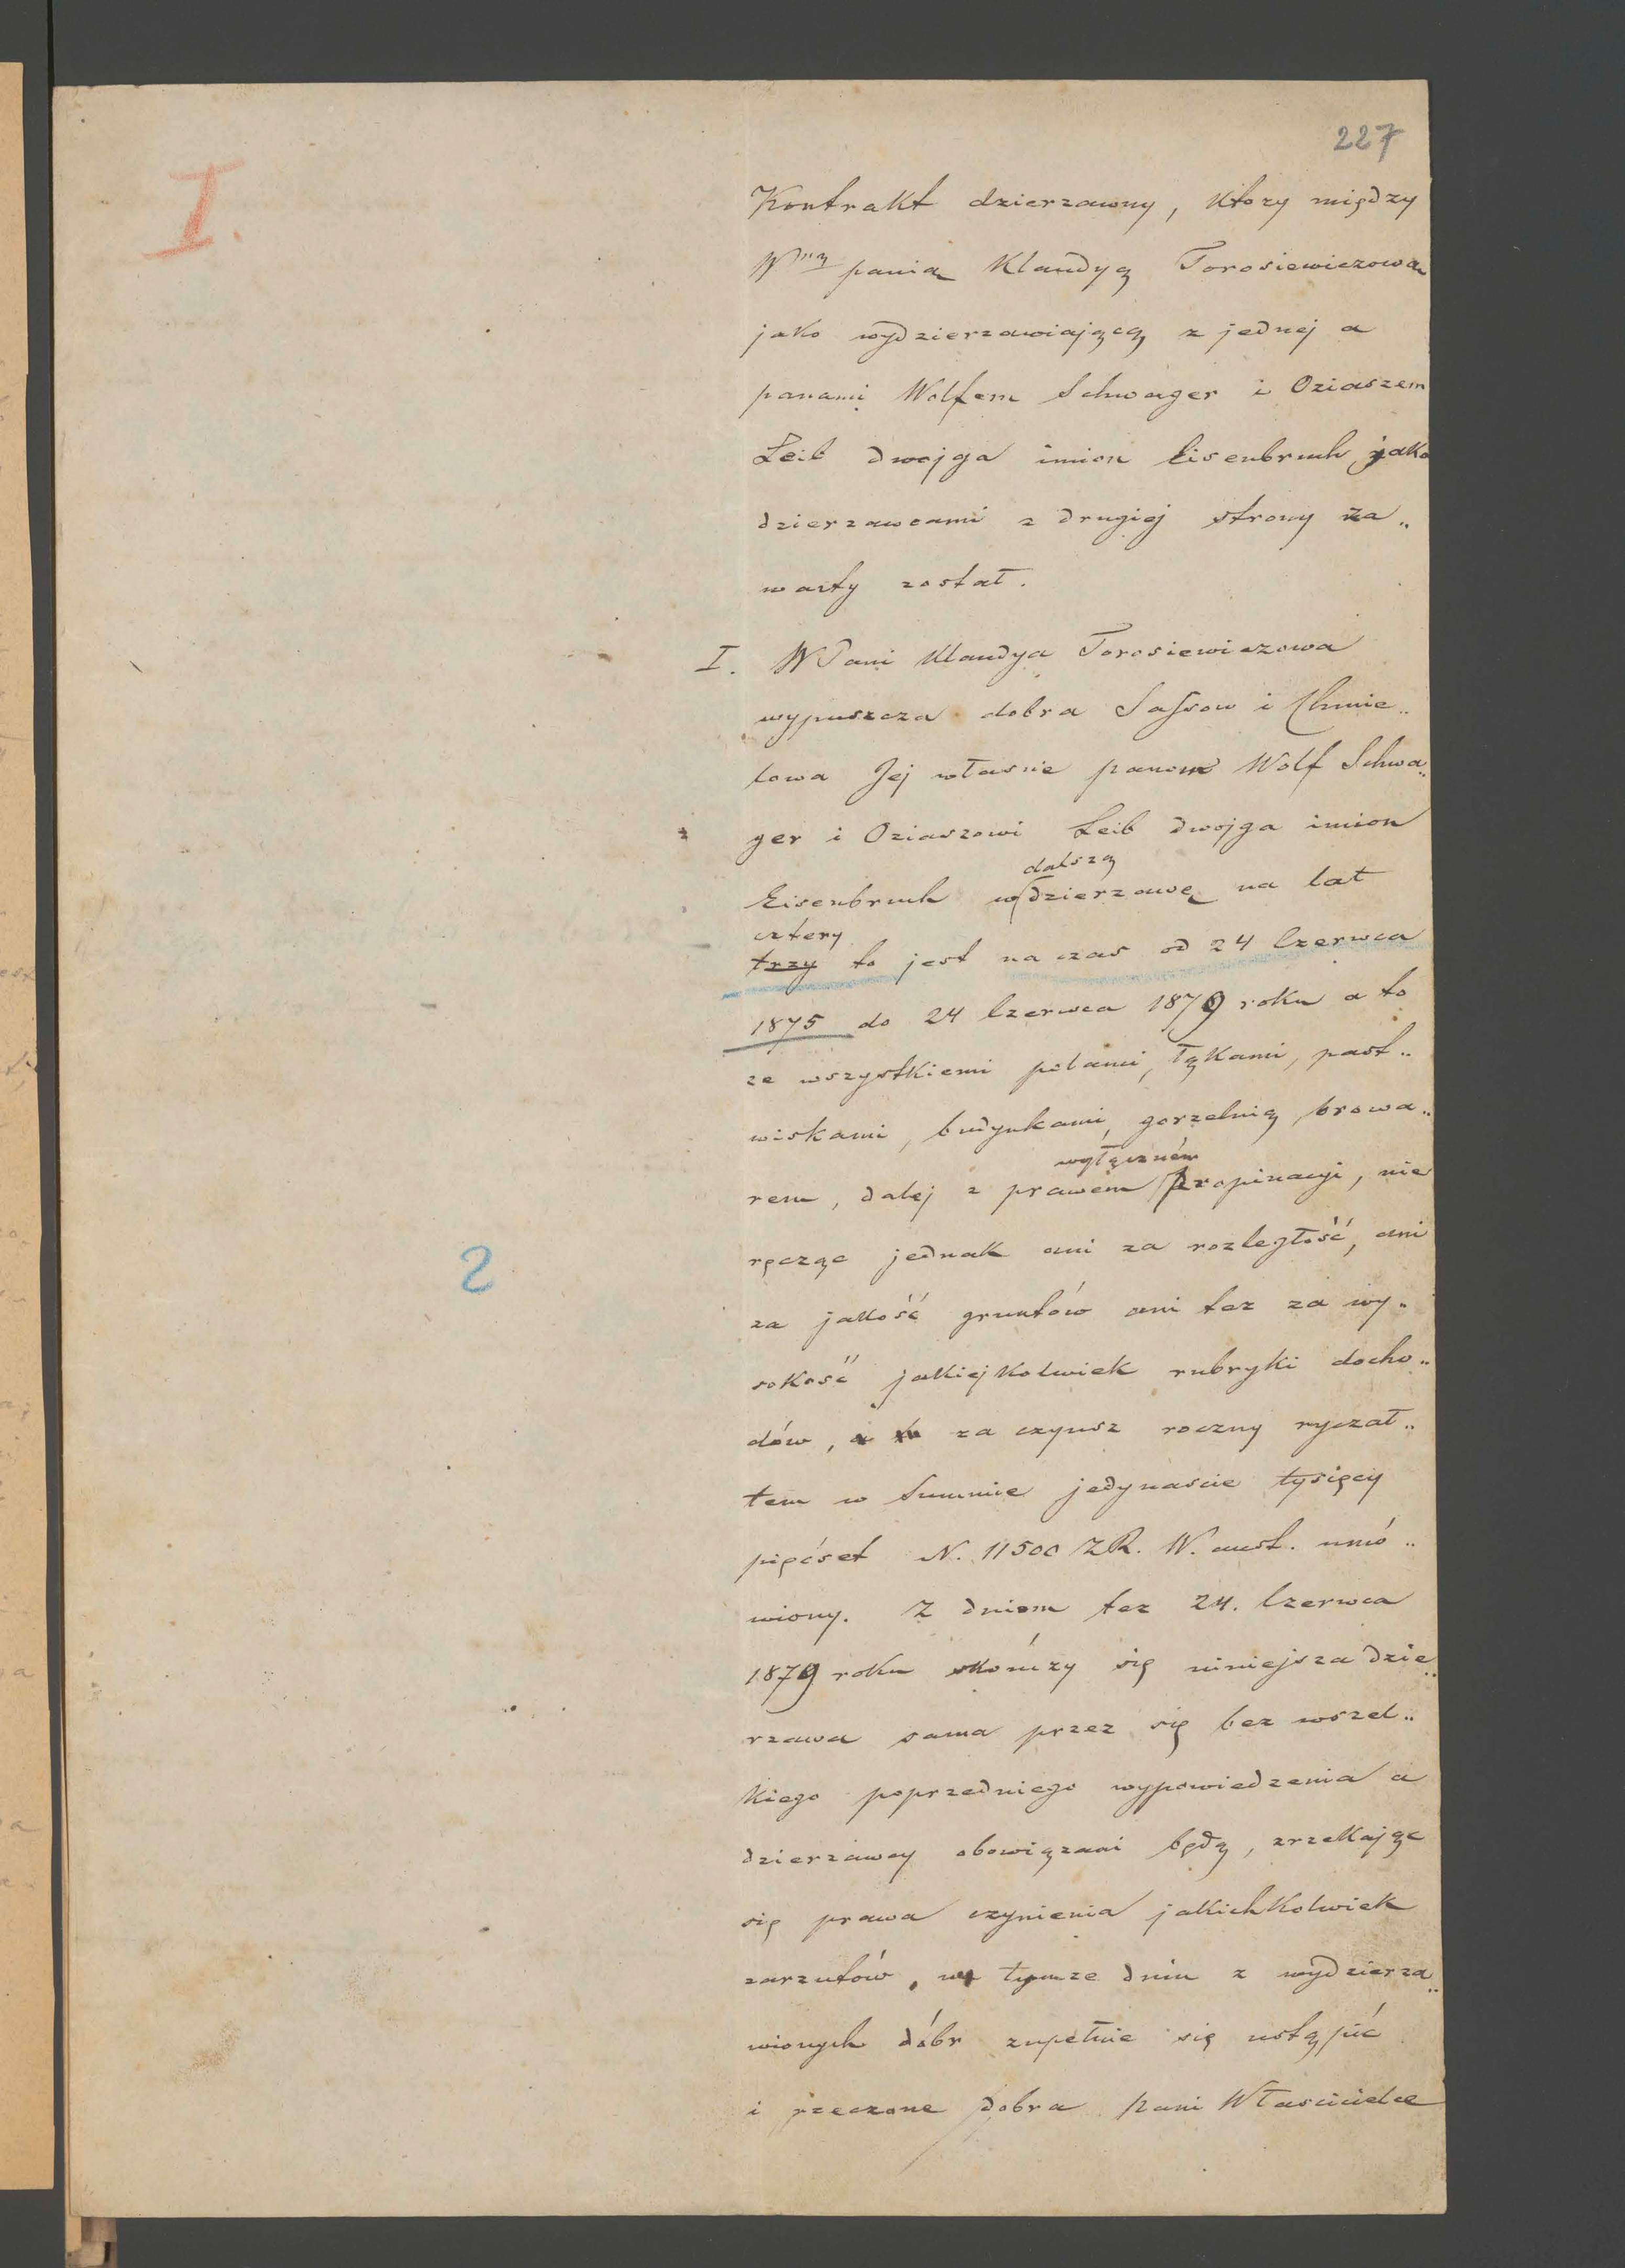 227
I.
Kontrakt dzierzawny, ktory między
Wną panią Klaudyą Torosiewiczową
jako wydzierzawiającą z jednej a
panami Wolfem Schwager i Oziaszem
Leib dwojga imion Eisenbruch jako
dzierzawcami z drugiej strony za„
warty został.
I. WPani Klaudya Torosiewiczowa
wypuszcza dobra Sassow i Chmie„
lowa Jej własne panom Wolf Schwa„
ger i Oziaszowi Leib dwojga imion
dalszą
Eisenbruch w dzierzawę na lat
cztery
trzy to jest na czas od 24 Czerwca
1875 do 24 Czerwca 1879 roku a to
ze wszystkiemi polami, łąkami, past„
wiskami, budynkami, gorzelnią, browa„
wyłączném
rem, dalej z prawem propinacyi, nie
2
ręcząc jednak ani za rozległość, ani
za jakość gruntów ani tez za wy„
sokość jakiejkolwiek rubryki docho„
dów, a za czynsz roczny ryczał„
tem w summie jedynascie tysięcy
pięćset N. 11500 ZR. W. aust. umó„
wiony. Z dniem tez 24. Czerwca
1879 roku skończy się niniejsza dzie„
rzawa sama przez się bez wszel„
kiego poprzedniego wypowiedzenia a
dzierzawcy obowiązani będą, zrzekając
się prawa czynienia jakichkolwiek
zarzutów, w tymze dniu z wydzierza„
wionych dóbr zupełnie się ustąpić
i rzeczone dobra pani Własicielce